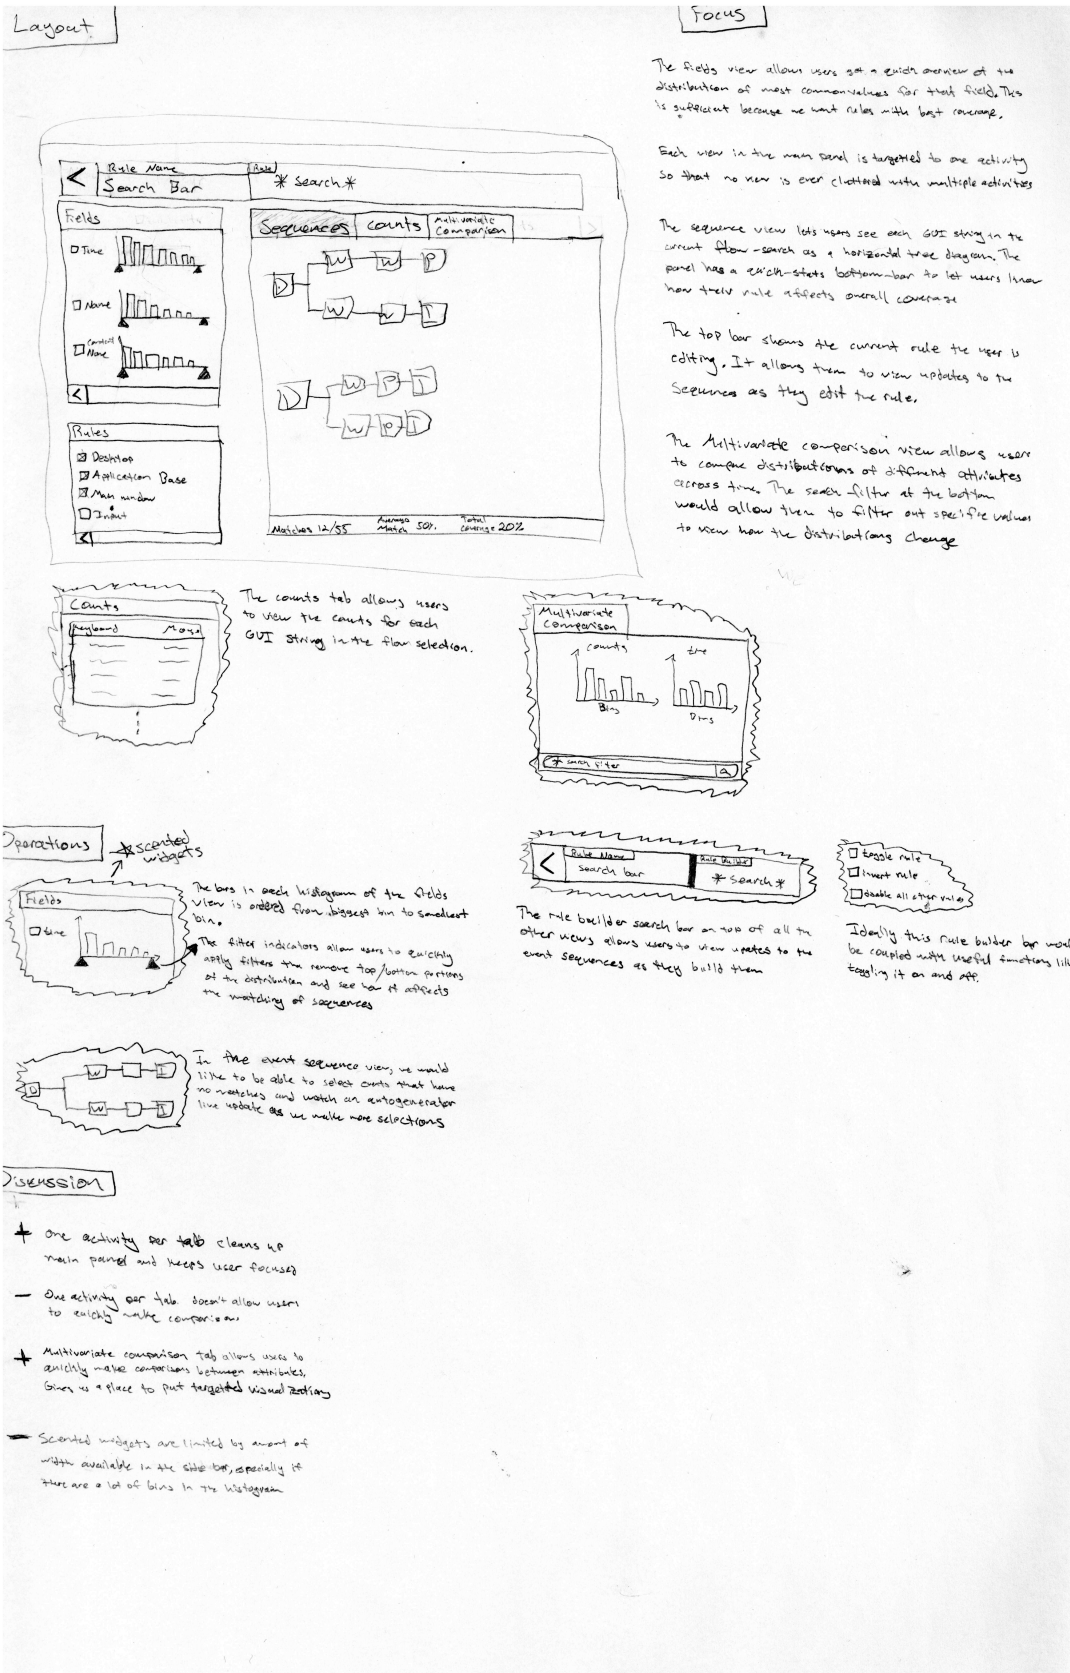 Layout
Rule Name
Search Bar
Rule
* search *
Fields
Time
Name
Control Name
<
Rules
Desktop
Application Base
Main window
Input
<
Sequences
Counts
Multivariate Comparison
D
W W P
W W I
D
W P I
W P I
Matches 12/55
Average Match 50%
Total Coverage 20%
Focus
The fields view allows users get a quick overview of the
distribution of most common values for that field. This
is sufficient because we want rules with best coverage.
Each view in the main panel is targetted to one activity
so that no view is ever cluttered with multiple activities
The sequence view lets users see each GUI string in the
current flow-search as a horizontal tree diagram. The
panel has a quick-stats bottom-bar to let users know
how their rule affects overall coverage
The top bar shows the current rule the user is
editing. It allows them to view updates to the
sequences as they edit the rule.
The Multivariate comparison view allows user
to compare distributions of different attributes
across time. The search filter at the bottom
would allow them to filter out specific values
to view how the distributions change
Counts
Keyboard
The counts tab allows users
to view the counts for each
GUI string in the flow selection.
Multivariate
Comparison
counts
time
Bins
Bins
* search filter
Operations
* scented
widgets
Fields
time
The bars in each histogram of the fields
view is ordered from biggest bin to smallest
bin.
The filter indicators allow users to quickly
apply filters the remove top/bottom portions
of the distribution and see how it affects
the matching of sequences
D
W I
W I
In the event sequence view, we would
like to be able to select events that have
no matches and watch an autogenerator
live update as we make more selections
<
Rule Name
search bar
Rule Builder
* Search *
The rule builder search bar on top of all the
other views allows users to view updates to the
event sequences as they build them
toggle rule
invert rule
disable all other rules
Ideally this rule builder bar would
be coupled with useful functions like
toggling it on and off.
Discussion
+ One activity per tab cleans up
main panel and keeps user focused
- One activity per tab doesn't allow users
to quickly make comparisons
+ Multivariate comparison tab allows users to
quickly make comparisons between attributes.
Gives us a place to put targetted visualizations
- Scented widgets are limited by amont of
width available in the side bar, especially if
there are a lot of bins in the histogram